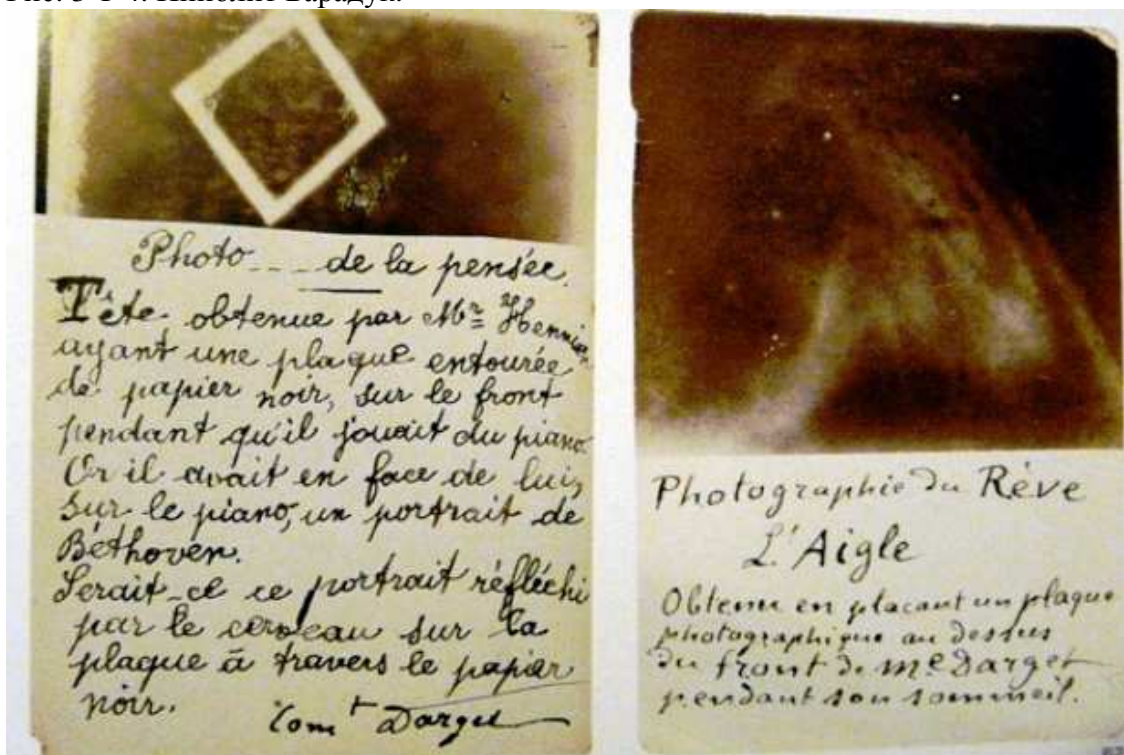 Photo___de la pensée.
Tête obtenue par Mr Hennin
ayant une plaque entourée
de papier noir, sur le front
pendant qu'il jouait du piano
Or il avait en face de lui,
sur le piano, un portrait de
Béthoven.
Serait-ce ce portrait réfléchi
par le cerveau sur la
plaque à travers le papier
noir.
Comt Darget
Photographie du Rêve
L'Aigle
Obtenu en placant un plaque
photographique au dessus
du front de Me Darget
pendant son sommeil.